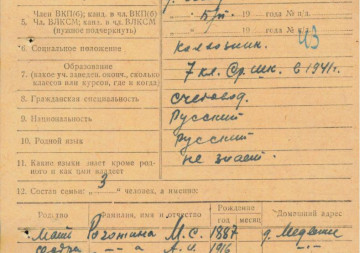 Член ВКП(б); канд. в ЧЛ. ВКП(б)
5. ЧЛ. ВЛКСМ; канд. в ЧЛ. ВЛКСМ б/п. 19 года № п/л.
(нужное подчеркнуть) 19 года № п/л. 43
6. Социальное положение колхозник.
Образование
7. (какое уч. заведен. оконч., сколько 7 кл. Ср. шк. в 1941г.
классов или курсов, где и когда)
8. Гражданская специальность счетовод.
9. Национальность Русский
10. Родной язык русский
11. Какие языки знает кроме род- не знает.
ного и как ими владеет
12. Состав семьи: „ 3 " человека, а именно:
Родство Фамилия, имя и отчество Рождение Домашний адрес
год месяц
мать Рогожина М.С. 1887 д.
сестра —"— А.И. 1916 —"—